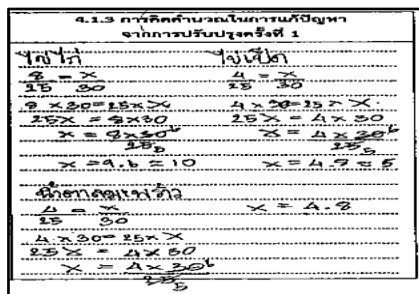 4.1.3 การคิดคำนวณในการแก้ปัญหา
จากการปรับปรุงครั้งที่ 1
ไข่ไก่
8/25 = x/30
8 x 30 = 25 x x
25x = 8 x 30
x = 8 x 30 6/25 5
x = 9.6 ≈ 10
ไข่เป็ด
4/25 = x/30
4 x 30 = 25 x x
25x = 4 x 30
x = 4 x 30 6/25 5
x = 4.8 ≈ 5
น้ำตาลมะพร้าว
4/25 = x/30
4 x 30 = 25 x x
25x = 4 x 30
x = 4 x 30 6/25 5
x = 4.8